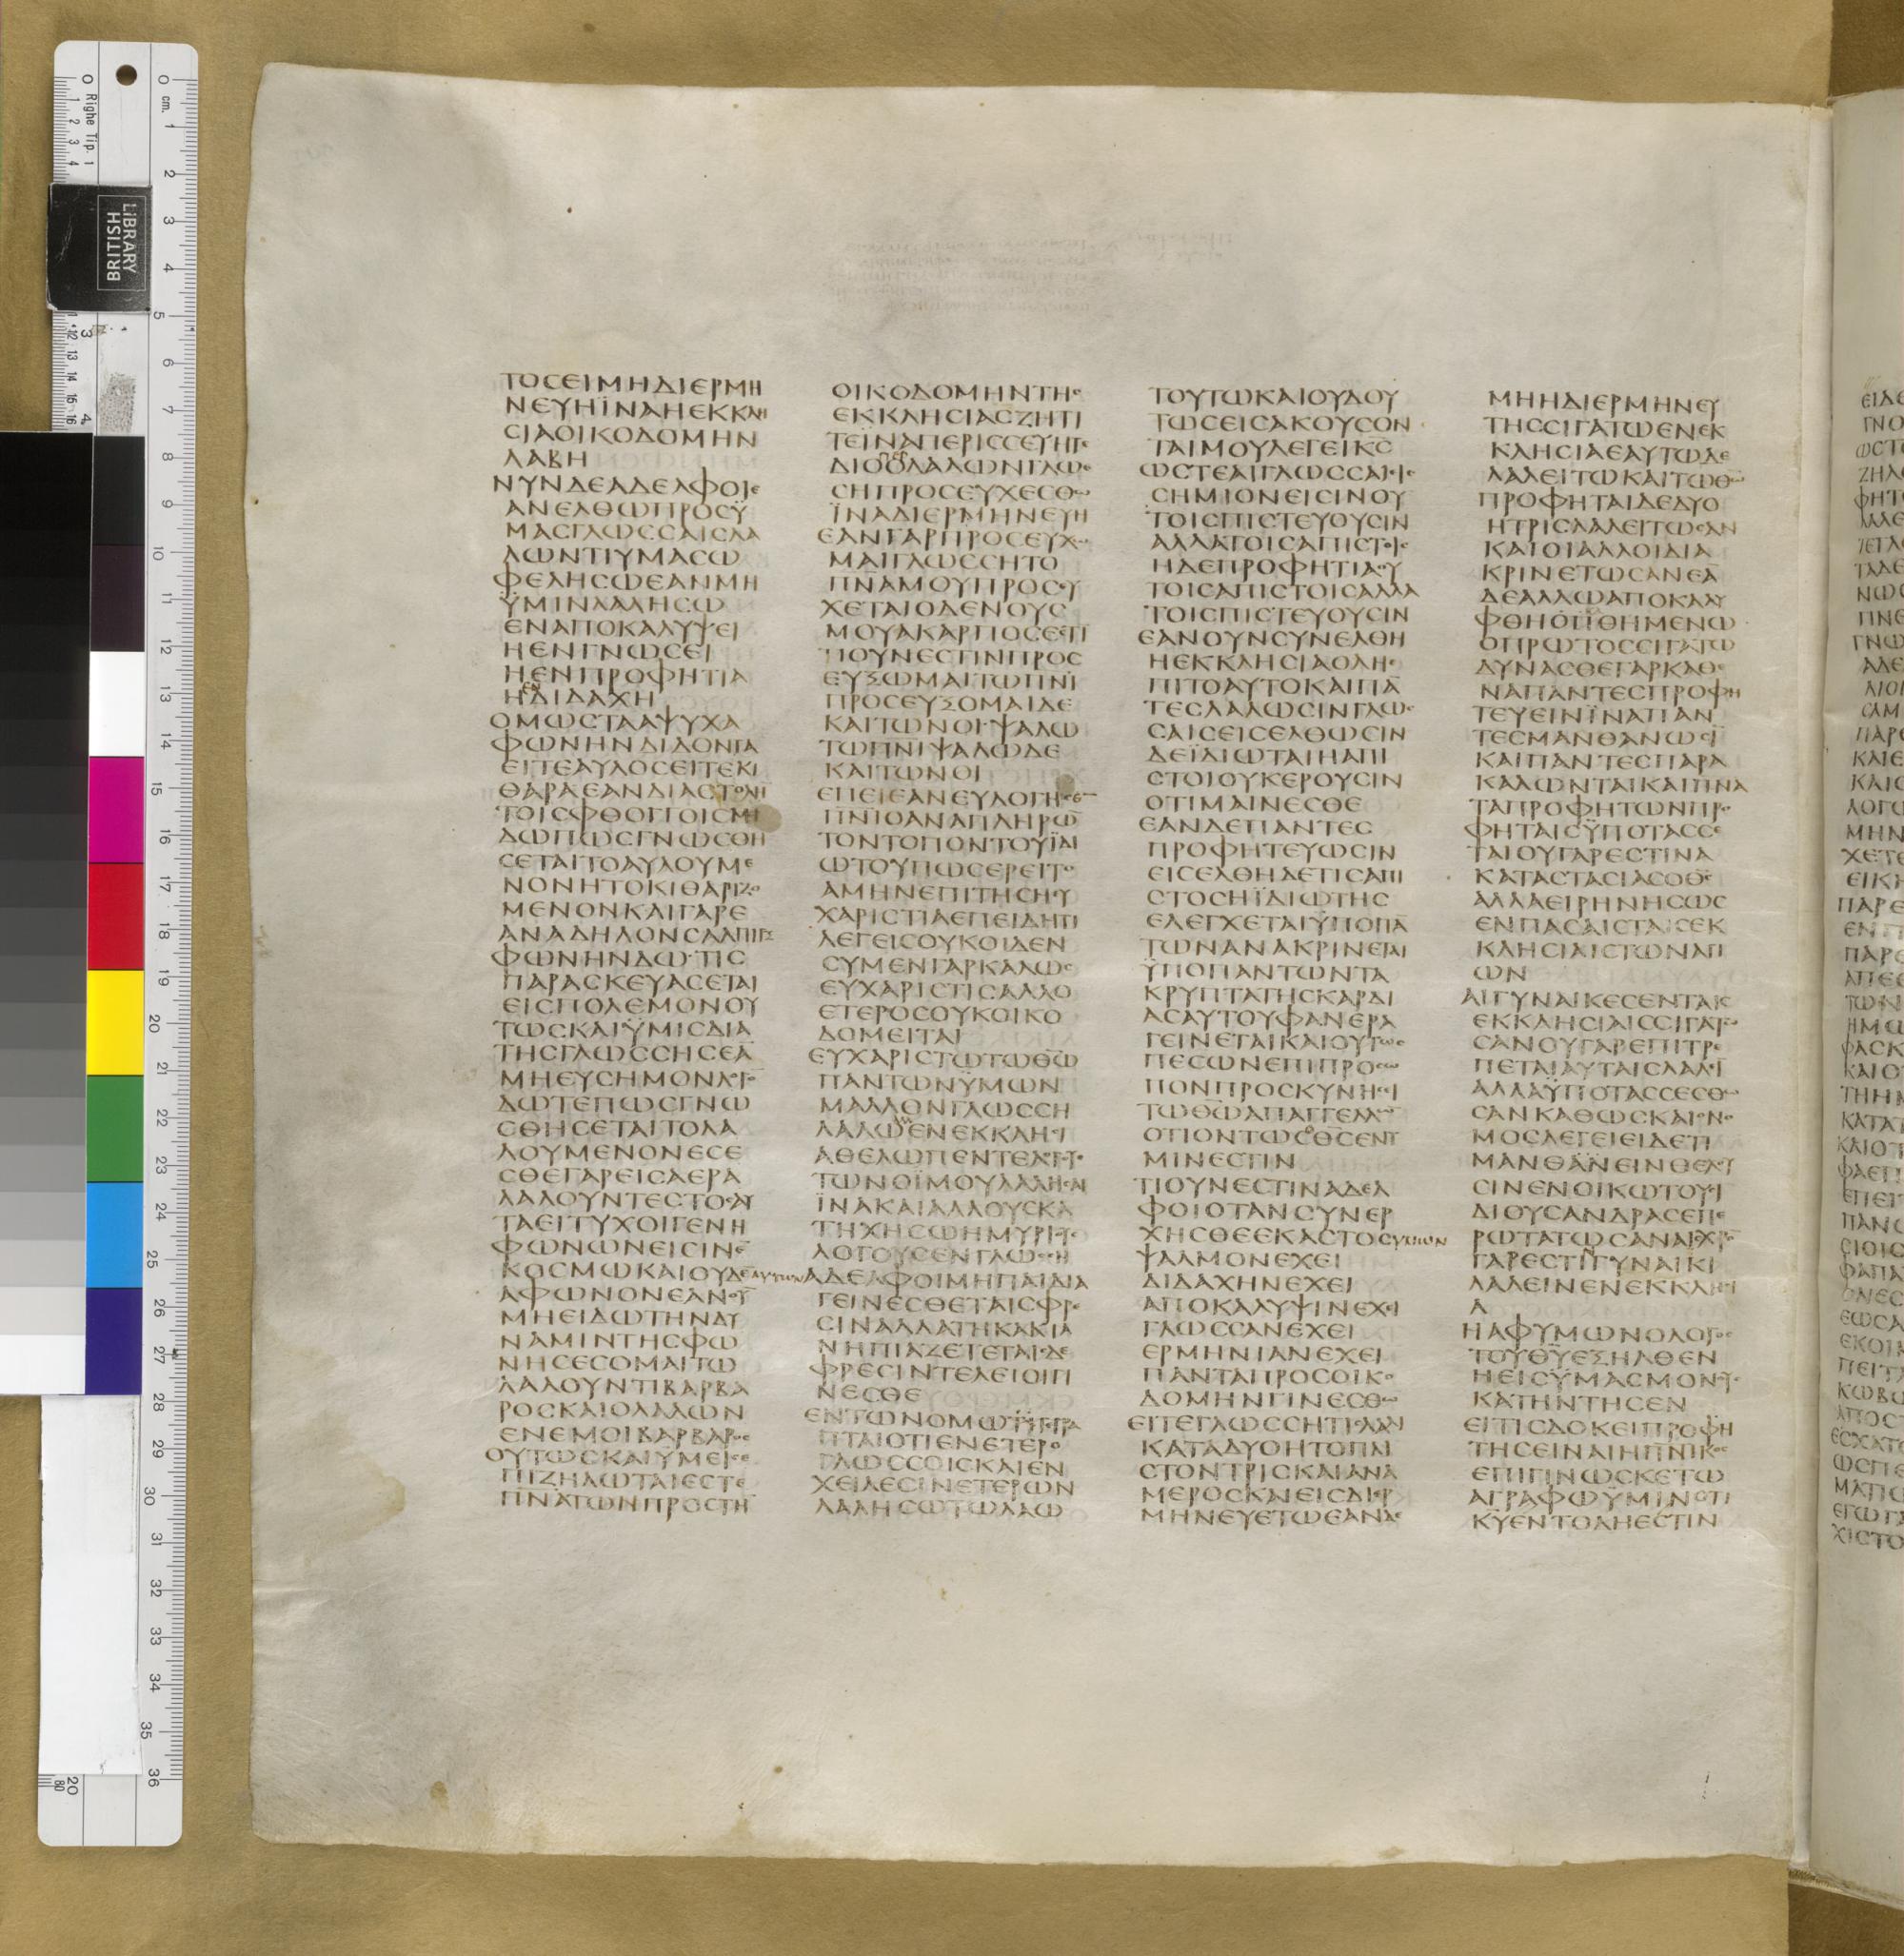 ΤΟCΕΙΜΗΔΙΕΡΜΗ
ΝΕΥΗΪΝΑΗΕΚΚΛΗ
CΙΑΟΙΚΟΔΟΜΗΝ
ΛΑΒΗ
ΝΥΝΔΕΑΔΕΛΦΟΙΕ
ΑΝΕΛΘΩΠΡΟCΫ
ΜΑCΓΛΩCCΑΙCΛΑ
ΛΩΝΤΙΥΜΑCΩ
ΦΕΛΗCΩΕΑΝΜΗ
ΫΜΙΝΛΑΛΗCΩ
ΕΝΑΠΟΚΑΛΥΨΕΙ
ΗΕΝΓΝΩCΕΙ
ΗΕΝΠΡΟΦΗΤΙΑ
ΗΕΝΔΙΔΑΧΗ
ΟΜΩCΤΑΑΨΥΧΑ
ΦΩΝΗΝΔΙΔΟΝΤΑ
ΕΙΤΕΑΥΛΟCΕΙΤΕΚΙ
ΘΑΡΑΕΑΝΔΙΑCΤΟΛΗ
ΤΟΙCΦΘΟΓΓΟΙCΜΗ
ΔΩΠΩCΓΝΩCΘΗ
CΕΤΑΙΤΟΑΥΛΟΥΜΕ
ΝΟΝΗΤΟΚΙΘΑΡΙΖΟ
ΜΕΝΟΝΚΑΙΓΑΡΕ
ΑΝΑΔΗΛΟΝCΑΛΠΙΓΞ
ΦΩΝΗΝΔΩΤΙC
ΠΑΡΑCΚΕΥΑCΕΤΑΙ
ΕΙCΠΟΛΕΜΟΝΟΥ
ΤΩCΚΑΙΫΜΙCΔΙΑ
ΤΗCΓΛΩCCΗCΕᾹ
ΜΗΕΥCΗΜΟΝΛΟΓΟ̄
ΔΩΤΕΠΩCΓΝΩ
CΘΗCΕΤΑΙΤΟΛΑ
ΛΟΥΜΕΝΟΝΕCΕ
CΘΕΓΑΡΕΙCΑΕΡΑ
ΛΑΛΟΥΝΤΕCΤΟCΑΥ
ΤΑΕΙΤΥΧΟΙΓΕΝΗ
ΦΩΝΩΝΕΙCΙΝΕ̄
ΚΟCΜΩΚΑΙΟΥΔΕΑΥΤΩΝ
ΑΦΩΝΟΝΕΑΝΟῩ
ΜΗΕΙΔΩΤΗΝΔΥ
ΝΑΜΙΝΤΗCΦΩ
ΝΗCΕCΟΜΑΙΤΩ
ΛΑΛΟΥΝΤΙΒΑΡΒΑ
ΡΟCΚΑΙΟΛΑΛΩΝ
ΕΝΕΜΟΙΒΑΡΒΑΡΟC
ΟΥΤΩCΚΑΙΫΜΕΙC
ΠΙΖΗΛΩΤΑΙΕCΤΕ
ΠΝΑΤΩΝΠΡΟCΤΗ̄
ΟΙΚΟΔΟΜΗΝΤΗC
ΕΚΚΛΗCΙΑCΖΗΤΙ
ΤΕΪΝΑΠΕΡΙCCΕΥΗΤΕ
ΔΙΟΠΕΡΟΛΑΛΩΝΓΛΩC
CΗΠΡΟCΕΥΧΕCΘΩ
ΪΝΑΔΙΕΡΜΗΝΕΥΗ
ΕΑΝΓΑΡΠΡΟCΕΥΧΩ
ΜΑΙΓΛΩCCΗΤΟ
ΠΝ̄ΑΜΟΥΠΡΟCΕΥ
ΧΕΤΑΙΟΔΕΝΟΥC
ΜΟΥΑΚΑΡΠΟCΕCΤΙ
ΤΙΟΥΝΕCΤΙΝΠΡΟC
ΕΥΞΩΜΑΙΤΩΠΝΙ
ΠΡΟCΕΥΞΟΜΑΙΔΕ
ΚΑΙΤΩΝΟΙΨΑΛΩ
ΤΩΠΝΙΨΑΛΩΔΕ
ΚΑΙΤΩΝΟΙ
ΕΠΕΙΕΑΝΕΥΛΟΓΗCΕ̄
ΠΝΙΟΑΝΑΠΛΗΡΩ̄
ΤΟΝΤΟΠΟΝΤΟΥΪΔΙ
ΩΤΟΥΠΩCΕΡΕΙΤΟ
ΑΜΗΝΕΠΙΤΗCΗΕΥ
ΧΑΡΙCΤΙΑΕΠΕΙΔΗΤΙ
ΛΕΓΕΙCΟΥΚΟΙΔΕΝ
CΥΜΕΝΓΑΡΚΑΛΩC
ΕΥΧΑΡΙCΤΙCΑΛΛΟ
ΕΤΕΡΟCΟΥΚΟΙΚΟ
ΔΟΜΕΙΤΑΙ
ΕΥΧΑΡΙCΤΩΤΩΘΩ̄
ΠΑΝΤΩΝΫΜΩΝ
ΜΑΛΛΟΝΓΛΩCCΗ
ΛΑΛΩΕΝΕΚΚΛΗCΙ
ΑΘΕΛΩΠΕΝΤΕΛΟΓΟΥC
ΤΩΝΟΪΜΟΥΛΑΛΗCΑΙ
ΪΝΑΚΑΙΑΛΛΟΥCΚΑ
ΤΗΧΗCΩΗΜΥΡΙΟΥC
ΛΟΓΟΥCΕΝΓΛΩCCΗ
ΑΔΕΛΦΟΙΜΗΠΑΙΔΙΑ
ΓΕΙΝΕCΘΕΤΑΙCΦΡΕ
CΙΝΑΛΛΑΤΗΚΑΚΙΑ
ΝΗΠΙΑΖΕΤΕΤΑΙCΔΕ
ΦΡΕCΙΝΤΕΛΕΙΟΙΓΙ
ΝΕCΘΕ
ΕΝΤΩΝΟΜΩΓΕΓΡΑ
ΠΤΑΙΟΤΙΕΝΕΤΕΡΟ
ΓΛΩCCΟΙCΚΑΙΕΝ
ΧΕΙΛΕCΙΝΕΤΕΡΩΝ
ΛΑΛΗCΩΤΩΛΑΩ
ΤΟΥΤΩΚΑΙΟΥΔΟΥ
ΤΩCΕΙCΑΚΟΥCΟΝ
ΤΑΙΜΟΥΛΕΓΕΙΚC̄
ΩCΤΕΑΙΓΛΩCCΑΙΕΙC
CΗΜΙΟΝΕΙCΙΝΟΥ
ΤΟΙCΠΙCΤΕΥΟΥCΙΝ
ΑΛΛΑΤΟΙCΑΠΙCΤΟΙC
ΗΔΕΠΡΟΦΗΤΙΑΟΥ
ΤΟΙCΑΠΙCΤΟΙCΑΛΛΑ
ΤΟΙCΠΙCΤΕΥΟΥCΙΝ
ΕΑΝΟΥΝCΥΝΕΛΘΗ
ΗΕΚΚΛΗCΙΑΟΛΗΕ
ΠΙΤΟΑΥΤΟΚΑΙΠᾹ
ΤΕCΛΑΛΩCΙΝΓΛΩC
CΑΙCΕΙCΕΛΘΩCΙΝ
ΔΕΪΔΙΩΤΑΙΗΑΠΙ
CΤΟΙΟΥΚΕΡΟΥCΙΝ
ΟΤΙΜΑΙΝΕCΘΕ
ΕΑΝΔΕΠΑΝΤΕC
ΠΡΟΦΗΤΕΥΩCΙΝ
ΕΙCΕΛΘΗΔΕΤΙCΑΠΙ
CΤΟCΗΪΔΙΩΤΗC
ΕΛΕΓΧΕΤΑΙΫΠΟΠᾹ
ΤΩΝΑΝΑΚΡΙΝΕΤΑΙ
ΫΠΟΠΑΝΤΩΝΤΑ
ΚΡΥΠΤΑΤΗCΚΑΡΔΙ
ΑCΑΥΤΟΥΦΑΝΕΡΑ
ΓΕΙΝΕΤΑΙΚΑΙΟΥΤΩC
ΠΕCΩΝΕΠΙΠΡΟCΩ
ΠΟΝΠΡΟCΚΥΝΗCΙ
ΤΩΘΩ̄ΑΠΑΓΓΕΛΛΩ̄
ΟΤΙΟΝΤΩCΟΘC̄ΕΝΥ
ΜΙΝΕCΤΙΝ
ΤΙΟΥΝΕCΤΙΝΑΔΕΛ
ΦΟΙΟΤΑΝCΥΝΕΡ
ΧΗCΘΕΕΚΑCΤΟCΥΜΩΝ
ΨΑΛΜΟΝΕΧΕΙ
ΔΙΔΑΧΗΝΕΧΕΙ
ΑΠΟΚΑΛΥΨΙΝΕΧΕΙ
ΓΛΩCCΑΝΕΧΕΙ
ΕΡΜΗΝΙΑΝΕΧΕΙ
ΠΑΝΤΑΠΡΟCΟΙΚΟ
ΔΟΜΗΝΓΙΝΕCΘΩ
ΕΙΤΕΓΛΩCCΗΤΙCΛΑΛΙ
ΚΑΤΑΔΥΟΗΤΟΠΛΙ
CΤΟΝΤΡΙCΚΑΙΑΝΑ
ΜΕΡΟCΚΑΙΕΙCΔΙΕΡ
ΜΗΝΕΥΕΤΩΕΑΝΔΕ
ΜΗΗΔΙΕΡΜΗΝΕΥ
ΤΗCCΙΓΑΤΩΕΝΕΚ
ΚΛΗCΙΑΕΑΥΤΩΔΕ
ΛΑΛΕΙΤΩΚΑΙΤΩΘΩ̄
ΠΡΟΦΗΤΑΙΔΕΔΥΟ
ΗΤΡΙCΛΑΛΕΙΤΩCΑΝ
ΚΑΙΟΙΑΛΛΟΙΔΙΑ
ΚΡΙΝΕΤΩCΑΝΕᾹ
ΔΕΑΛΛΩΑΠΟΚΑΛΥ
ΦΘΗΚΑΘΗΜΕΝΩ
ΟΠΡΩΤΟCCΙΓΑΤΩ
ΔΥΝΑCΘΕΓΑΡΚΑΘΕ
ΝΑΠΑΝΤΕCΠΡΟΦΗ
ΤΕΥΕΙΝΪΝΑΠΑΝ
ΤΕCΜΑΝΘΑΝΩCΙ
ΚΑΙΠΑΝΤΕCΠΑΡΑ
ΚΑΛΩΝΤΑΙΚΑΙΠΝΑ
ΤΑΠΡΟΦΗΤΩΝΠΡΟ
ΦΗΤΑΙCΫΠΟΤΑCCΕ
ΤΑΙΟΥΓΑΡΕCΤΙΝΑ
ΚΑΤΑCΤΑCΙΑCΟΘC̄
ΑΛΛΑΕΙΡΗΝΗCΩC
ΕΝΠΑCΑΙCΤΑΙCΕΚ
ΚΛΗCΙΑΙCΤΩΝΑΓΙ
ΩΝ
ΑΙΓΥΝΑΙΚΕCΕΝΤΑΙC
ΕΚΚΛΗCΙΑΙCCΙΓΑΤΩ
CΑΝΟΥΓΑΡΕΠΙΤΡΕ
ΠΕΤΑΙΑΥΤΑΙCΛΑΛΙ
ΑΛΛΑΫΠΟΤΑCCΕCΘΩ
CΑΝΚΑΘΩCΚΑΙΟΝΟ
ΜΟCΛΕΓΕΙΕΙΔΕΤΙ
ΜΑΝΘΑΝΕΙΝΘΕΛΟΥ
CΙΝΕΝΟΙΚΩΤΟΥCΙ
ΔΙΟΥCΑΝΔΡΑCΕΠΕ
ΡΩΤΑΤΩCΑΝΑΙCΧΡΟ̄
ΓΑΡΕCΤΙΓΥΝΑΙΚΙ
ΛΑΛΕΙΝΕΝΕΚΚΛΗCΙ
Α
ΗΑΦΥΜΩΝΟΛΟΓΟC
ΤΟΥΘῩΕΞΗΛΘΕΝ
ΗΕΙCΫΜΑCΜΟΝΟΥC
ΚΑΤΗΝΤΗCΕΝ
ΕΙΤΙCΔΟΚΕΙΠΡΟΦΗ
ΤΗCΕΙΝΑΙΗΠΝΙΚΟC
ΕΠΙΓΙΝΩCΚΕΤΩ
ΑΓΡΑΦΩΫΜΙΝΟΤΙ
ΚῩΕΝΤΟΛΗΕCΤΙΝ
BRITISH
LIBRARY
Righe Tip. 1
cm.